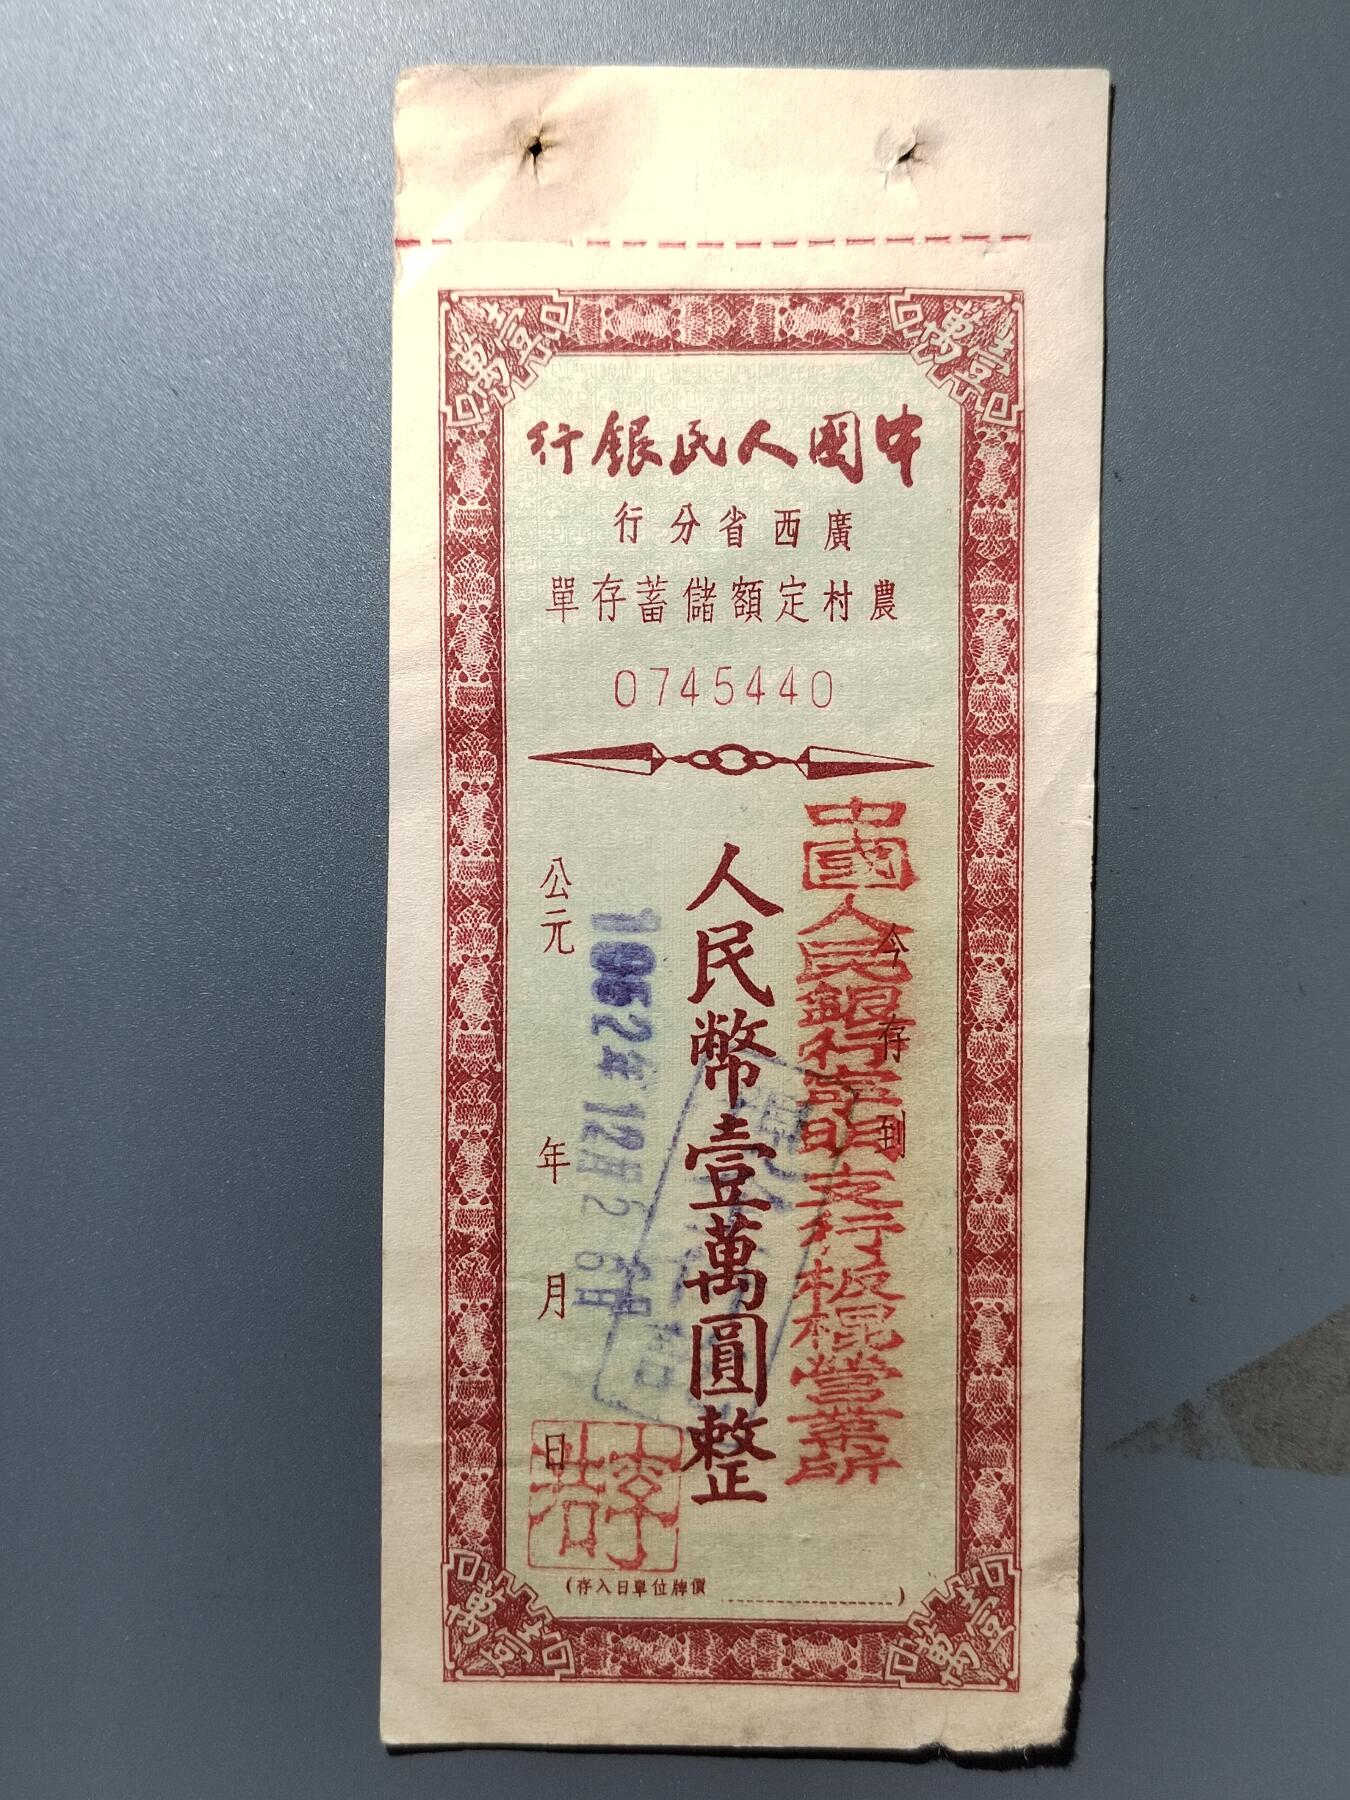 壹萬
壹萬
中國人民銀行
廣西省分行
農村定額儲蓄存單
0745440
中國人民銀行寧明支行板棍營業所
今存到
人民幣壹萬圓整
1952年12月26日
公元 年 月 日
(存入日單位牌價 )
壹萬
壹萬